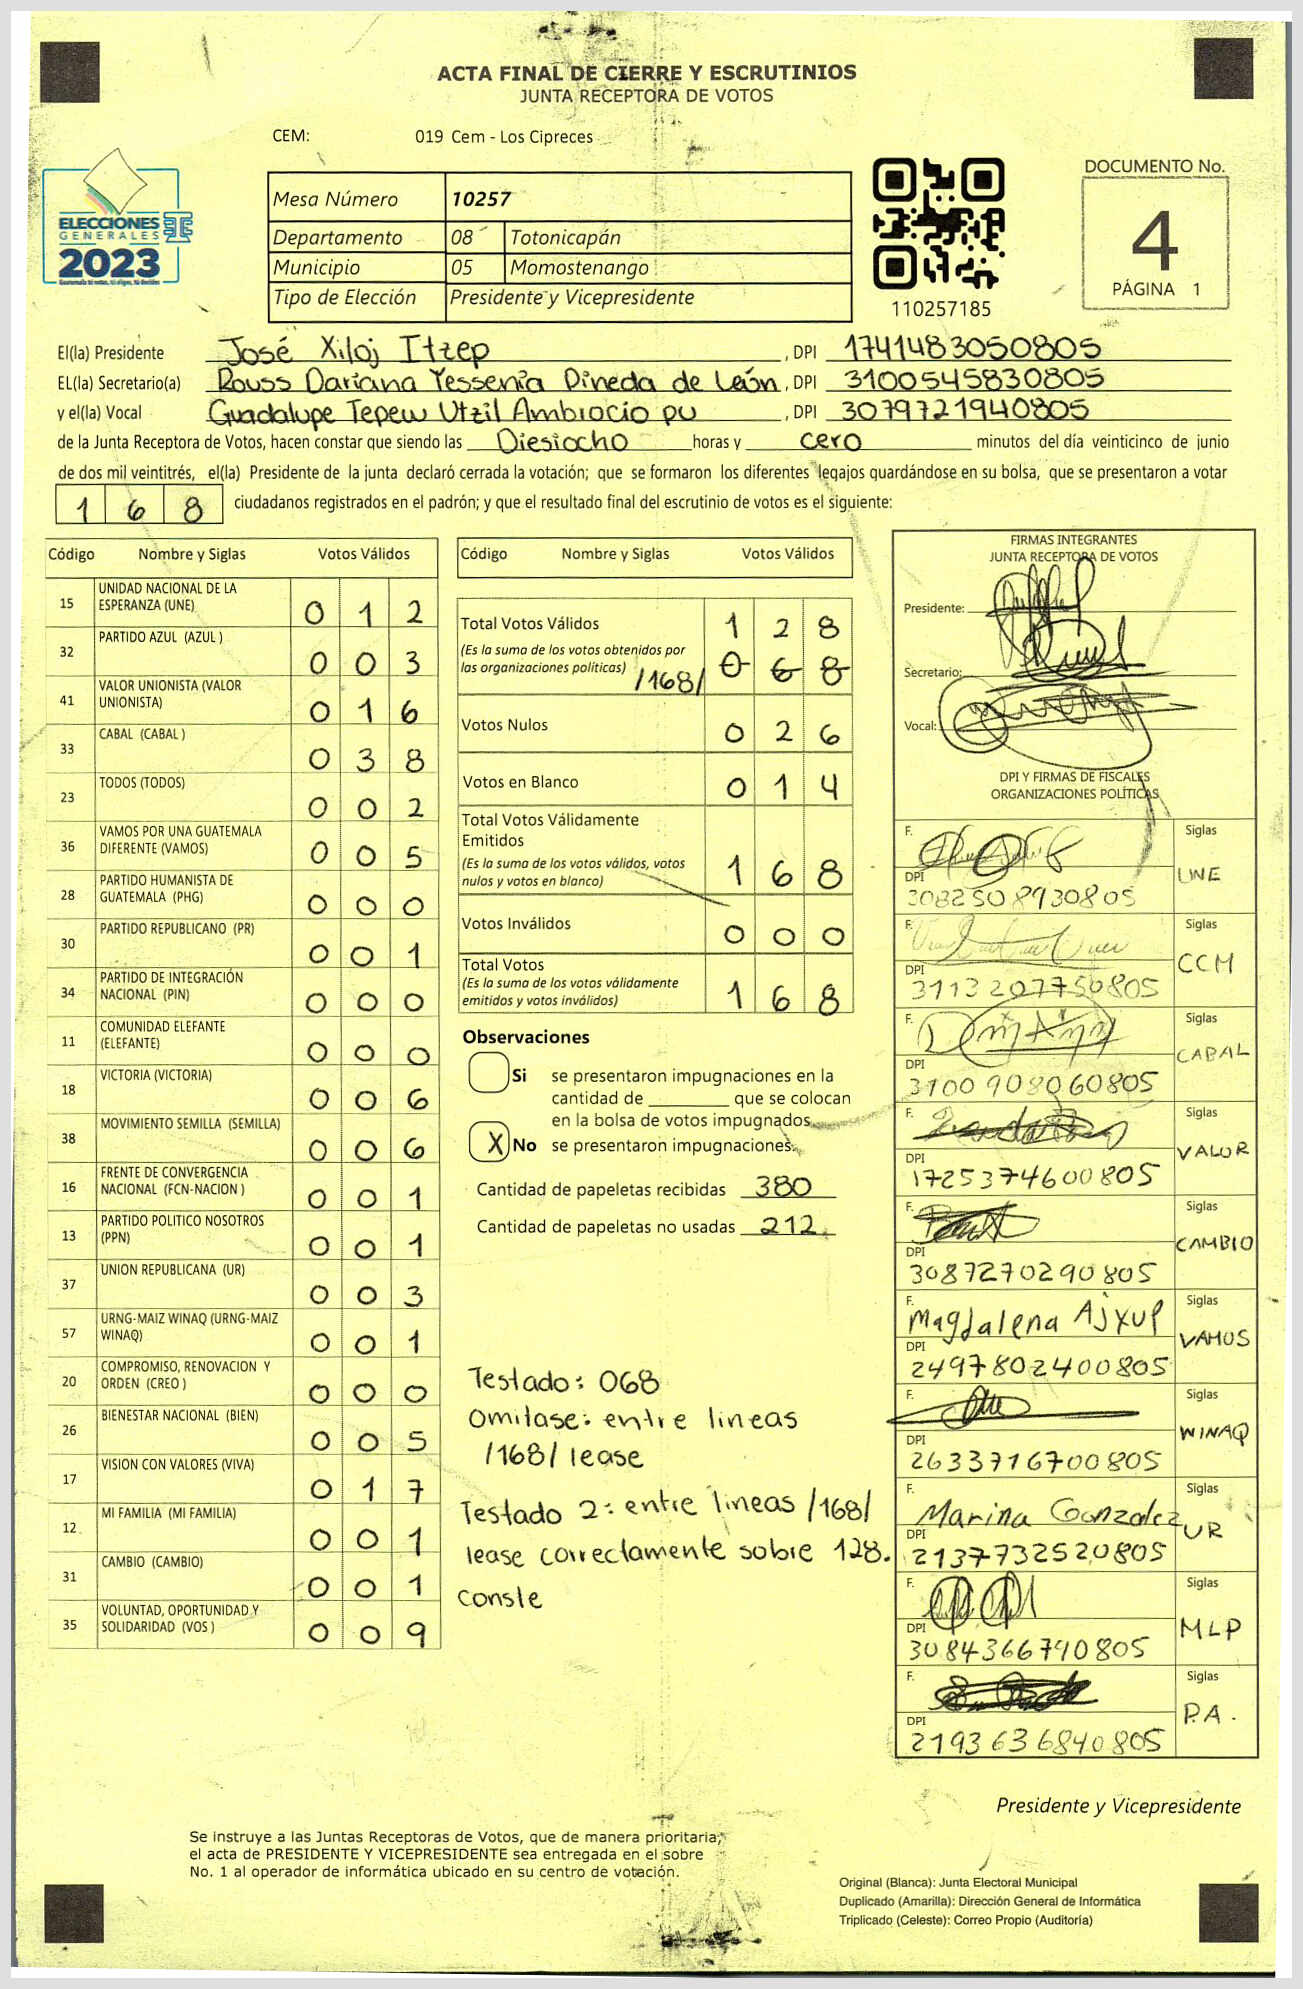 ACTA FINAL DE CIERRE Y ESCRUTINIOS
JUNTA RECEPTORA DE VOTOS
CEM: 019 Cem - Los Cipreces
ELECCIONES
GENERALES
2023
Mesa Número 10257
Departamento 08 Totonicapán
Municipio 05 Momostenango
Tipo de Elección Presidente y Vicepresidente
110257185
DOCUMENTO No.
4
PÁGINA 1
El(la) Presidente José Xiloj Itzep, DPI 1741483050805
EL(la) Secretario(a) Rouss Dariana Yessenia Pineda de León, DPI 3100545830805
y el(la) Vocal Guadalupe Tepew Utzil Ambrocio pu, DPI 3079721940805
de la Junta Receptora de Votos, hacen constar que siendo las Diesiocho horas y cero minutos del día veinticinco de junio
de dos mil veintitrés, el(la) Presidente de la junta declaró cerrada la votación; que se formaron los diferentes legajos quardándose en su bolsa, que se presentaron a votar
1 6 8 ciudadanos registrados en el padrón; y que el resultado final del escrutinio de votos es el siguiente:
Código Nombre y Siglas Votos Válidos
15 UNIDAD NACIONAL DE LA ESPERANZA (UNE) 0 1 2
32 PARTIDO AZUL (AZUL ) 0 0 3
41 VALOR UNIONISTA (VALOR UNIONISTA) 0 1 6
33 CABAL (CABAL ) 0 3 8
23 TODOS (TODOS) 0 0 2
36 VAMOS POR UNA GUATEMALA DIFERENTE (VAMOS) 0 0 5
28 PARTIDO HUMANISTA DE GUATEMALA (PHG) 0 0 0
30 PARTIDO REPUBLICANO (PR) 0 0 1
34 PARTIDO DE INTEGRACIÓN NACIONAL (PIN) 0 0 0
11 COMUNIDAD ELEFANTE (ELEFANTE) 0 0 0
18 VICTORIA (VICTORIA) 0 0 6
38 MOVIMIENTO SEMILLA (SEMILLA) 0 0 6
16 FRENTE DE CONVERGENCIA NACIONAL (FCN-NACION ) 0 0 1
13 PARTIDO POLITICO NOSOTROS (PPN) 0 0 1
37 UNION REPUBLICANA (UR) 0 0 3
57 URNG-MAIZ WINAQ (URNG-MAIZ WINAQ) 0 0 1
20 COMPROMISO, RENOVACION Y ORDEN (CREO ) 0 0 0
26 BIENESTAR NACIONAL (BIEN) 0 0 5
17 VISION CON VALORES (VIVA) 0 1 7
12 MI FAMILIA (MI FAMILIA) 0 0 1
31 CAMBIO (CAMBIO) 0 0 1
35 VOLUNTAD, OPORTUNIDAD Y SOLIDARIDAD (VOS ) 0 0 9
Código Nombre y Siglas Votos Válidos
Total Votos Válidos 1 2 8
(Es la suma de los votos obtenidos por
las organizaciones políticas) /168/ 0 6 8
Votos Nulos 0 2 6
Votos en Blanco 0 1 4
Total Votos Válidamente
Emitidos
(Es la suma de los votos válidos, votos
nulos y votos en blanco) 1 6 8
Votos Inválidos 0 0 0
Total Votos
(Es la suma de los votos válidamente
emitidos y votos inválidos) 1 6 8
Observaciones
Si se presentaron impugnaciones en la
cantidad de ________ que se colocan
en la bolsa de votos impugnados.
X No se presentaron impugnaciones.
Cantidad de papeletas recibidas 380
Cantidad de papeletas no usadas 212
Testado: 068
Omitase: entre lineas
/168/ lease
Testado 2: entre lineas /168/
lease correctamente sobre 128.
Conste
FIRMAS INTEGRANTES
JUNTA RECEPTORA DE VOTOS
Presidente:
Secretario:
Vocal:
DPI Y FIRMAS DE FISCALES
ORGANIZACIONES POLÍTICAS
F. Siglas
DPI UNE
3082508930805
F. Siglas
DPI CCM
3113207750805
F. Siglas
DPI CABAL
3100908060805
F. Siglas
DPI VALOR
1725374600805
F. Siglas
DPI CAMBIO
3087270290805
F. Magdalena Ajxup Siglas
DPI VAMOS
2497802400805
F. Siglas
DPI WINAQ
2633716700805
F. Marina Gonzalez Siglas
DPI UR
2137732520805
F. Siglas
DPI MLP
3084366740805
F. Siglas
DPI P.A.
2193636840805
Presidente y Vicepresidente
Se instruye a las Juntas Receptoras de Votos, que de manera prioritaria,
el acta de PRESIDENTE Y VICEPRESIDENTE sea entregada en el sobre
No. 1 al operador de informática ubicado en su centro de votación.
Original (Blanca): Junta Electoral Municipal
Duplicado (Amarilla): Dirección General de Informática
Triplicado (Celeste): Correo Propio (Auditoría)